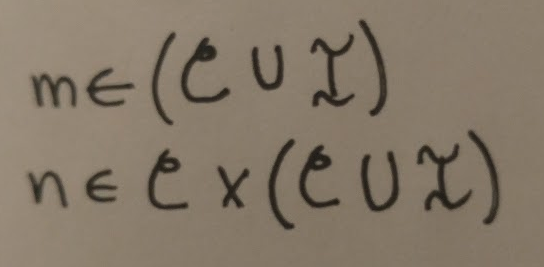 m ∈ (𝒞 ∪ 𝓘)
n ∈ 𝒞 × (𝒞 ∪ 𝓘)